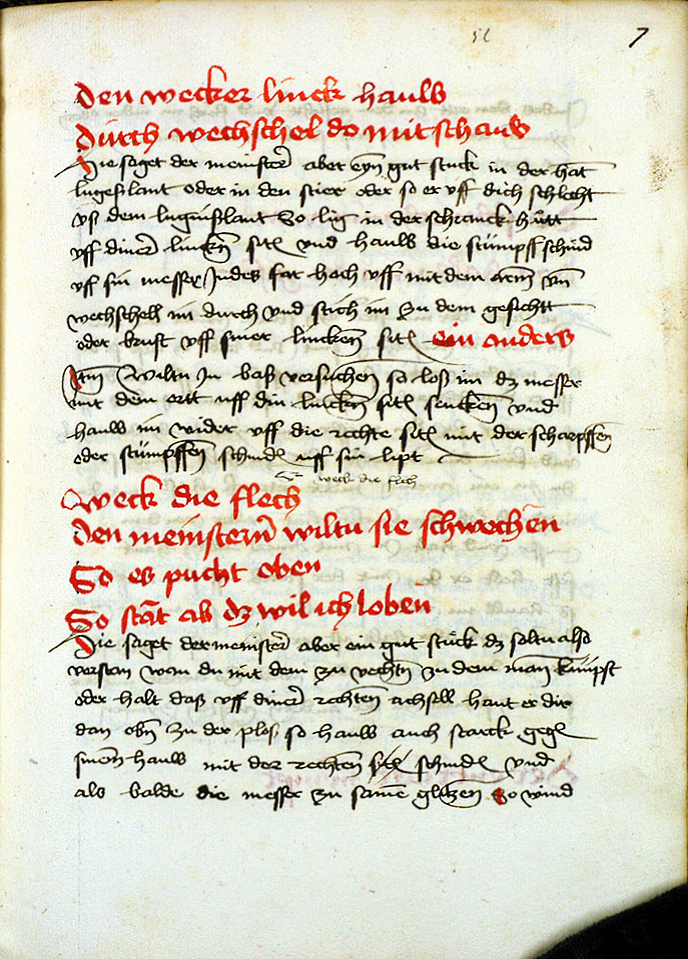 7
den wecker linck hauw
durch wechschel do mit schaw
Hie saget der meinster aber eyn gut stuck in der hat
lugeßlant oder in den stier oder so er uff dich schlecht
uß dem luginßlant So lig in der schranck hůtt
uff diner lincken sitē und hauw die stümpff schnid
uf sin messer Indes far hoch uff mit dem arm vn̄
wechschell im durch und stich im zu dem gesichtt
oder brust uff siner lincken sitē ein anders
Itm̄ Wiltu In baß versuchen so loß im dz messer
mit dem ortt uff din lincken sitē sencken vnd
hauw im wider uff die rechte sitē mit der scharpffen
oder stümpffen schnidē uff sin lipt
weck die flech
Weck die flech
den meinstern wiltu sie schwechen
So es pucht oben
So stāt ab dz wil ich loben
Hie saget der meinster aber ein gut stück dz soltu also
verstan wan du mit dem zu vechten zu dem man kümpst
oder halt daß uff diner rechten achsell haut er dir
dan obn̄ zu der ploß so hauw auch starck gegē
sinem hauw mit der rechten schnidē vnd
als balde die messer zu samē glitzen So wind